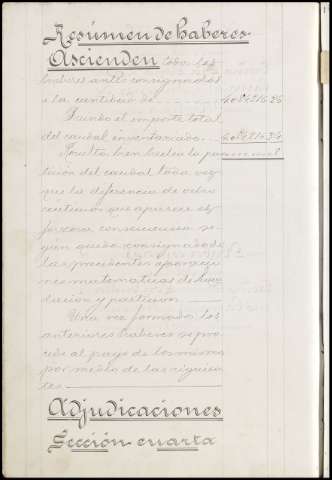 Resúmen de haberes
Ascienden todos los
haberes antes consignados
á la cantidad de
Siendo el importe total
del caudal inventariado
Resulta bien hecha la par
tición del caudal toda vez
que la diferencia de ocho
centimos que aparece es
forzosa consecuencia se
gún queda consignado de
las precedentes operacio
nes matematicas de liqui
dación y particion
Una vez formados los
anteriores haberes se pro
cede al pago de los mismos
por medio de las siguien
tes
Adjudicaciones
Sección cuarta